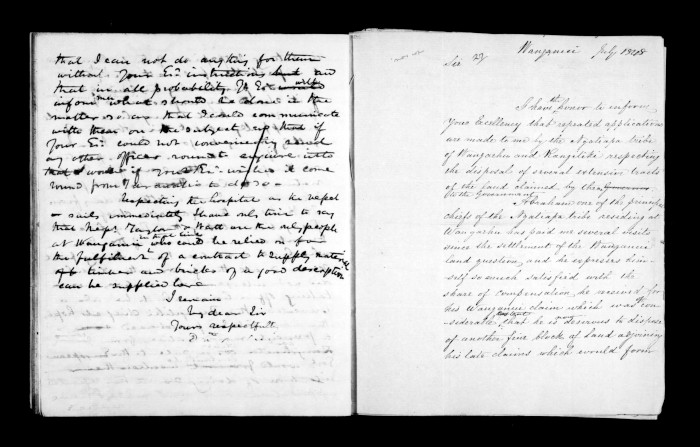 that I can not do anything for them
without Your Ex instructions and
that in all probability Yr Ex would
inform me what should be done in the
matter so as that I could communicate
with them on the subject or that if
Your Ex could not conveniently send
any other officer round to enquire into
that I would if Your Ex wishes it come
round from Taranaki to do so -
Respecting the hospital as the vessel
sails immediately I have only time to say
that Messrs Taylor & Watt are the only people
at Wanganui who could be relied on for
the fulfilment of a contract to supply material
timber and bricks of a good description
can be supplied here
I remain
My dear Sir
Yours respectfully
Sir Wanganui July 1848
I have the honor to inform
Your Excellency that repeated applications
are made to me by the Ngatiapa tribe
of Wangaehu and Rangitiki respecting
the disposal of several extensive tracts
of the land claimed by them
(to the Government)
Abraham one of the principal
chiefs of the Ngatiapa tribe residing at
Wangaehu has paid me several visits
since the settlement of the Wanganui
land question, and he expresses him-
self so much satisfied with the
share of compensation he received for
his Wanganui claim which was con-
siderate that he is desirous to dispose
of another fine block of land adjoining
his late claims which would form